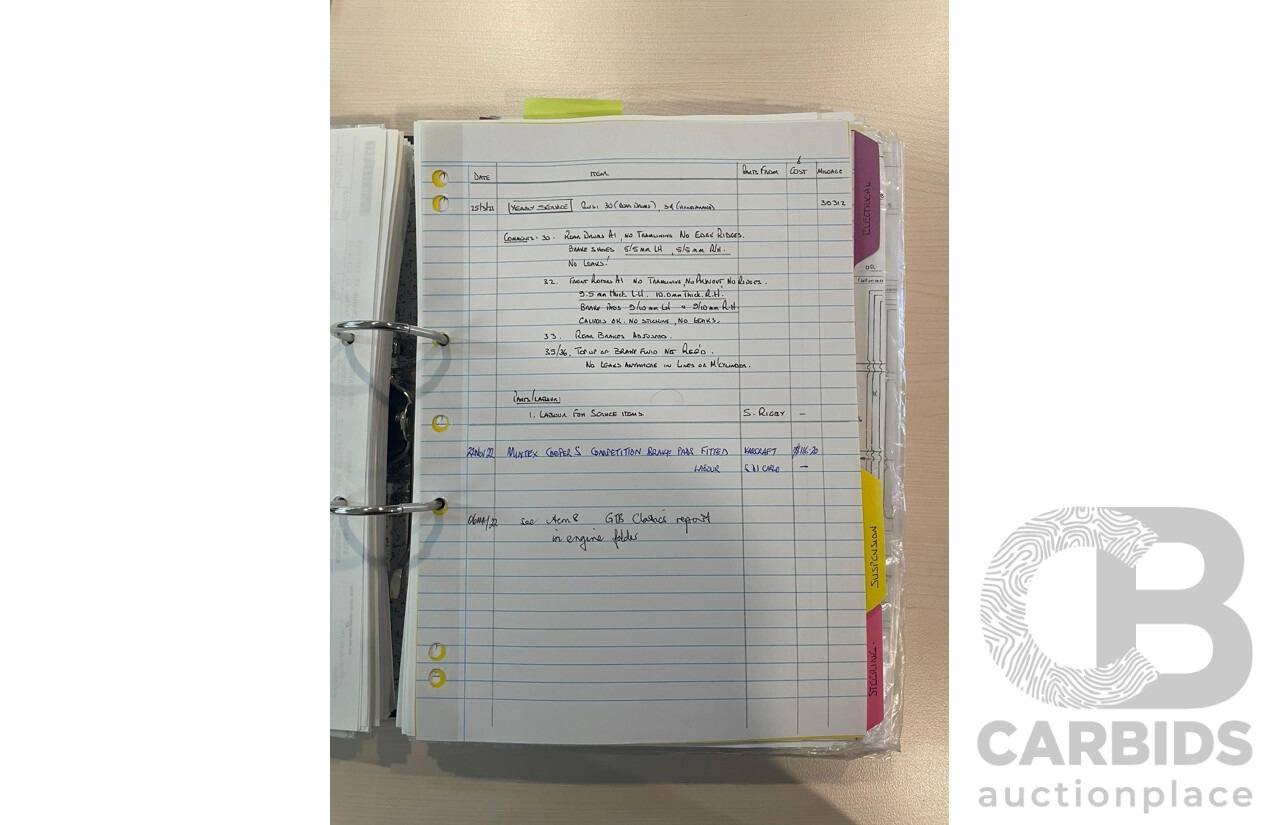 DATE ITEM PARTS FROM COST MILEAGE
25/3/21 YEARLY SERVICE 30 (REAR DRUMS), 30312
COMMENTS: 30. REAR DRUMS A1, NO TRAMLINING NO EDGE RIDGES.
BRAKE SHOES 5/5 MM LH, 5/5 MM R/H.
NO LEAKS!
32. FRONT ROTORS A1 NO TRAMLINING, NO RUNOUT NO RIDGES.
9.5 mm thick L.H. 10.0mm Thick R.H.
BRAKE PADS 9/10 MM LH 9/10 MM R.H.
CALIPERS OK. NO STICKING, NO LEAKS.
33. REAR BRAKES ADJUSTED.
35/36. TOP UP OF BRAKE FLUID NOT REQ'D.
NO LEAKS ANYWHERE IN LINES OR M'CYLINDER.
PARTS/LABOUR:
1. LABOUR FOR SERVICE ITEMS S. RIGBY –
22 NOV 22 MINTEX COOPER S COMPETITION BRAKE PADS FITTED KARCRAFT $116.20
LABOUR –
see item 8 GTB Classics report
in engine folder
ELECTRICAL
SUSPENSION
STEERING.
CB
CARBIDS
auctionplace